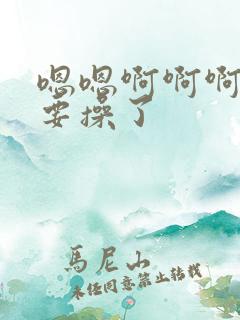 嗯嗯啊啊啊
要操了
馬尼山
未经同意禁止转载